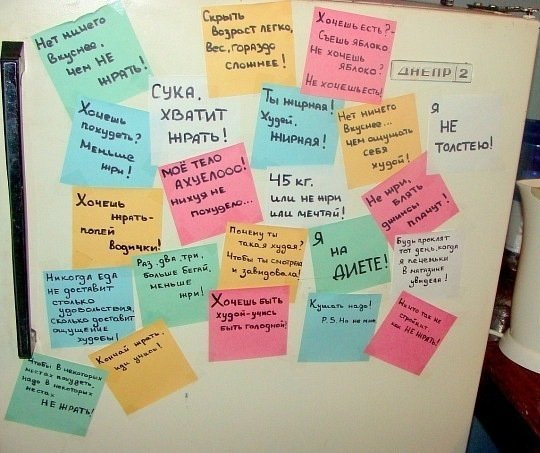 Нет ничего
вкуснее,
чем НЕ
ЖРАТЬ!
Скрыть
возраст легко,
Вес, гораздо
сложнее!
Хочешь есть?-
Съешь яблоко
Не хочешь
яблоко?
Не хочешь есть!
ДНЕПР 2
Хочешь
похудеть?
Меньше
жри!
СУКА,
ХВАТИТ
ЖРАТЬ!
Ты жирная!
Худей,
ЖИРНАЯ!
Нет ничего
Вкуснее...
чем ощущать
себя
худой!
Я
НЕ
ТОЛСТЕЮ!
МОЁ ТЕЛО
АХУЕЛООО!
нихуя не
похудело...
Хочешь
жрать-
попей
водички!
45 кг.
или не жри
или мечтай!
Не жри,
блять
джинсы
плачут!
Никогда еда
не доставит
столько
удовольствия,
сколько доставит
ощущение
худобы!
Раз, два, три,
больше бегай,
меньше
жри!
Почему ты
такая худая?
Чтобы ты смотрела
и завидовала!
Я
НА
ДИЕТЕ!
Будь проклят
тот день, когда
я печеньки
в магазине
увидела!
Хочешь быть
худой-учись
быть голодной!
Кушать надо!
P.S. Но не мне
Ничто так не
стройнит,
как НЕ ЖРАТЬ!
Чтобы в некоторых
местах похудеть,
надо в некоторых
местах
НЕ ЖРАТЬ!
Кончай жрать,
иди учись!